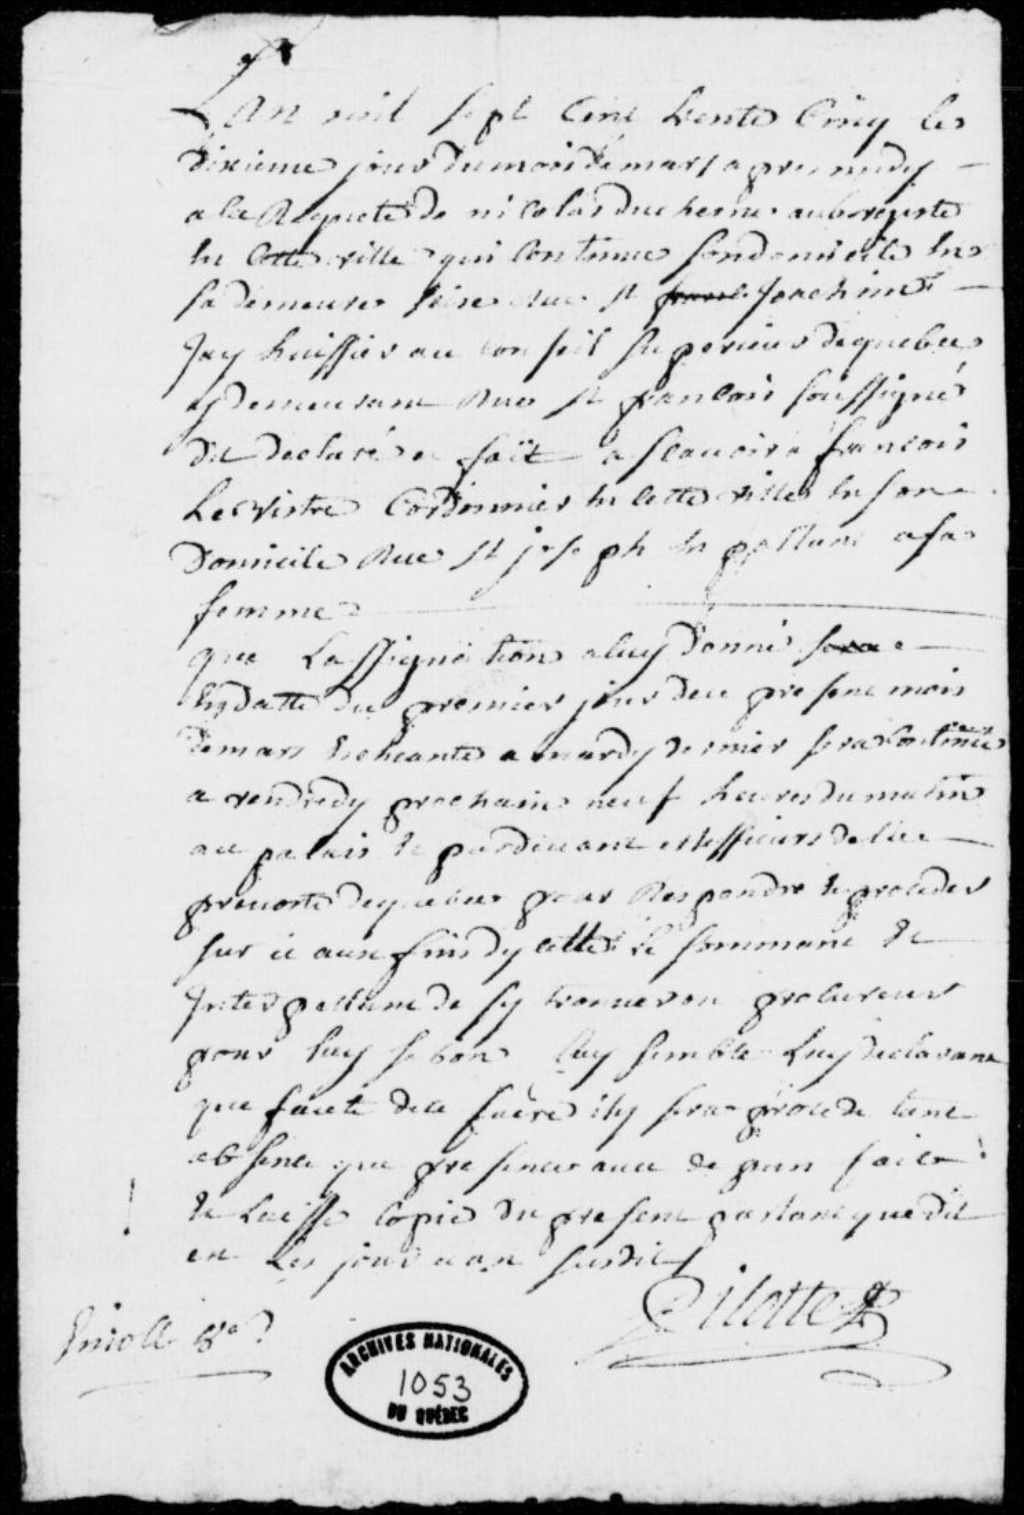 Lan mil sept cent trente cinq le
dixieme jour du mois de mars apres midy
a la Requete de nicolas duchesne aubergiste
en cette ville qui continue son domicile en
sa demeure size rue st joachim
Jay huissier au conseil superieur dequebec
y demeurant Rue st francois soussigné
dit declaré et fait a scavoir a francois
Levistre Cordonnier en cette ville en son
Domicile Rue st joseph en parlant a sa
femme
que Lassignation a luy donné
en datte du premier jour du present mois
demars Echeante a mardy dernier sera continuée
a vendredy prochain neuf heures du matin
au palais et pardevant Messieurs dela
prevosté dequebec pour Respondre et proceder
sur et aux fins dycelle Le sommant et
Interpellant de sy trouver ou procureur
pour luy se bon luy semble Luy declarant
que faute dece faire il y sera procedé tant
absence que presence
et Laissé copie du present parlant que dit
est Les jour et an susdit
Pilotte
ARCHIVES NATIONALES
1053
DU QUÉBEC